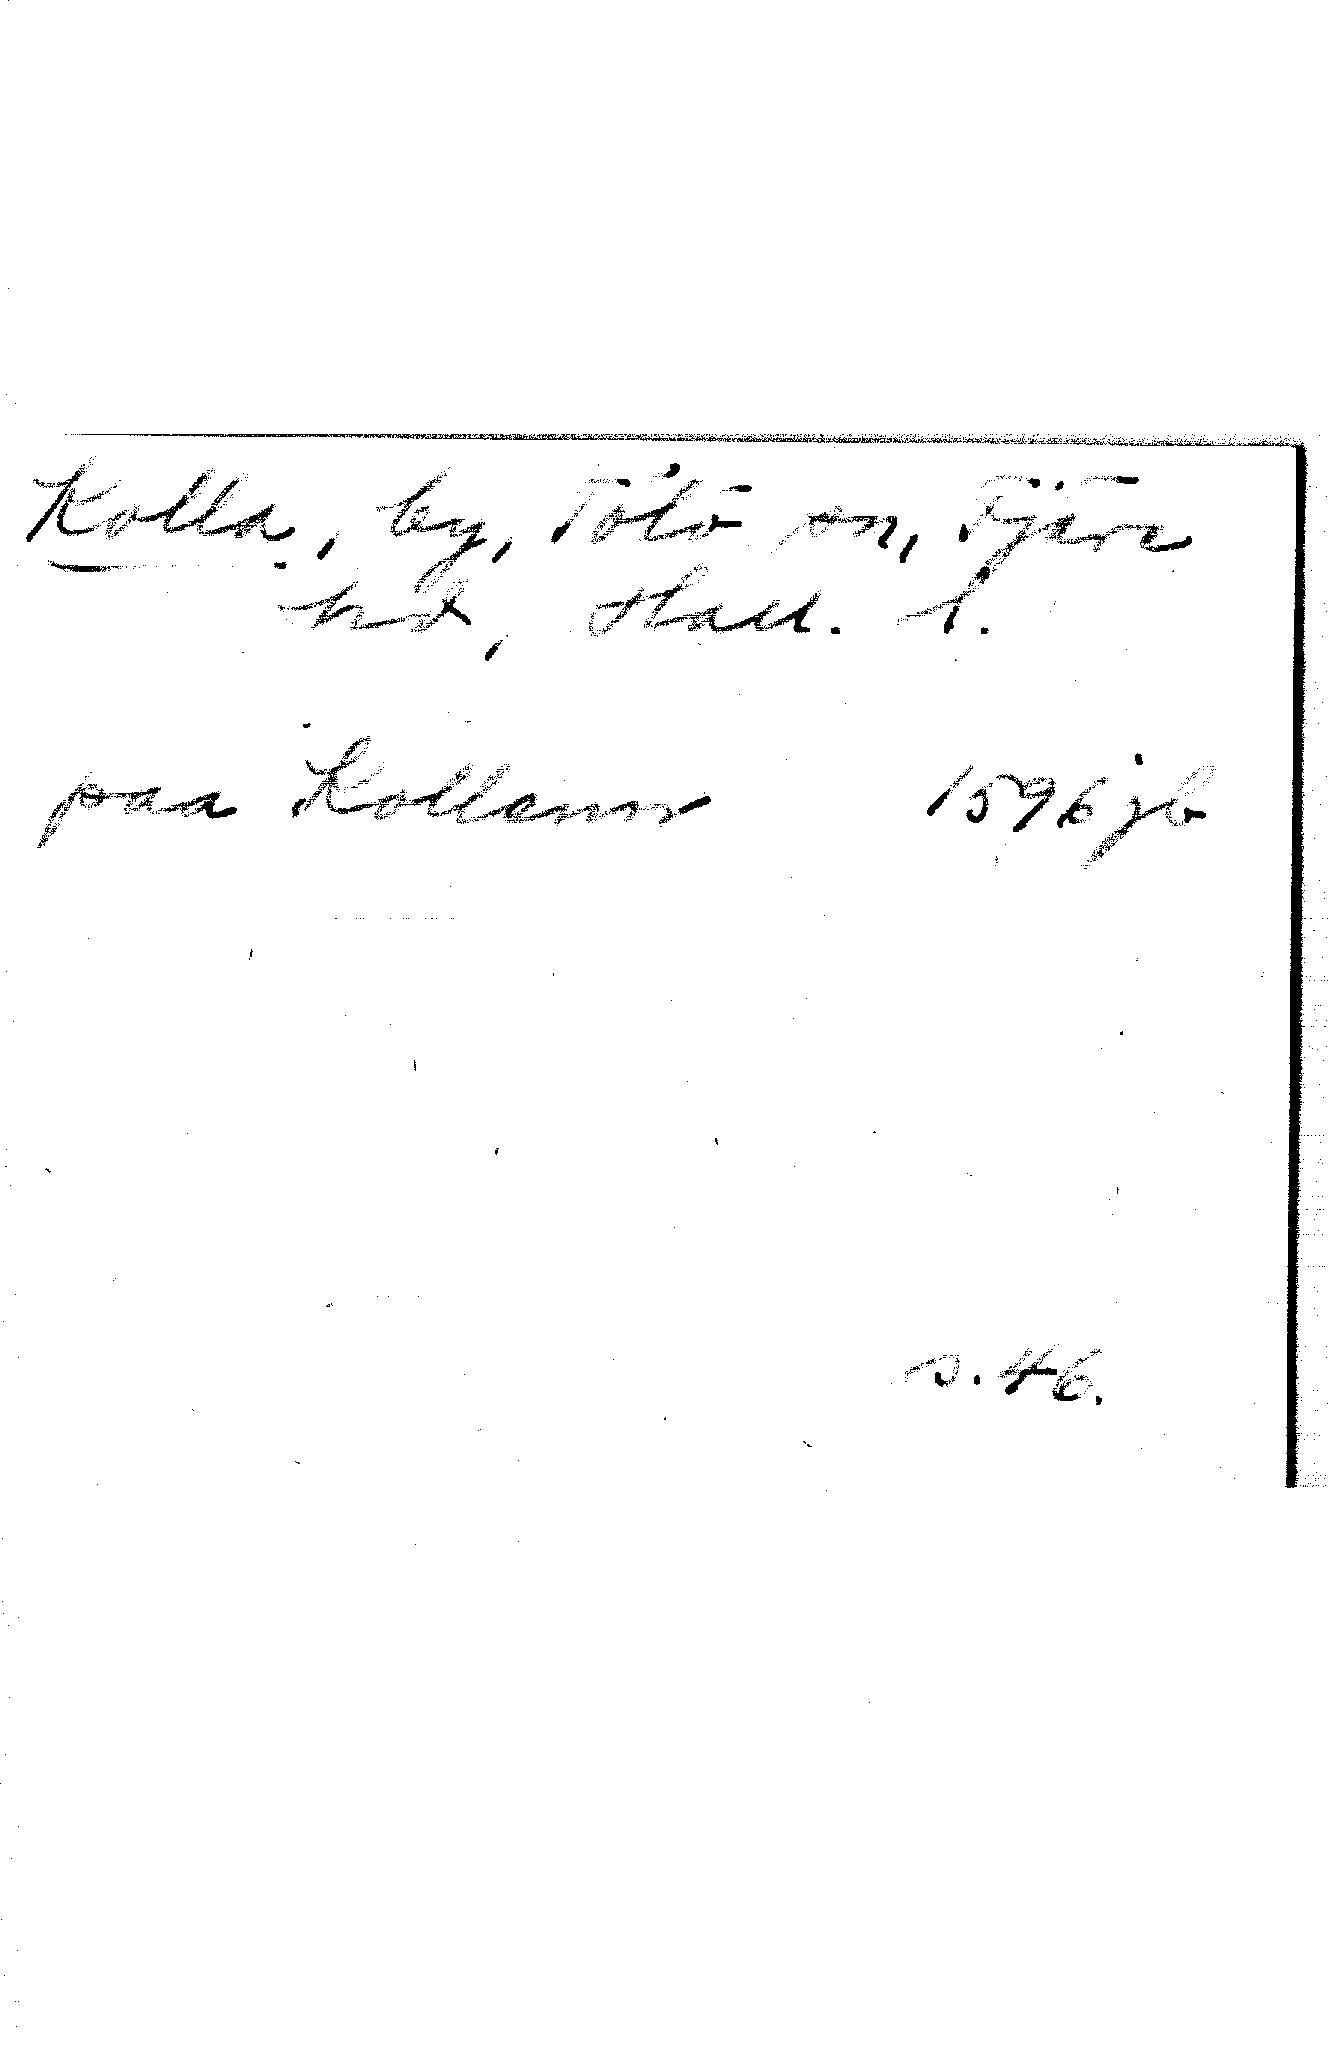 Kolla, by, Tölö sn, Fjäre
hd, Hall. l.
paa Kollenn 1596 jb
s. 46.